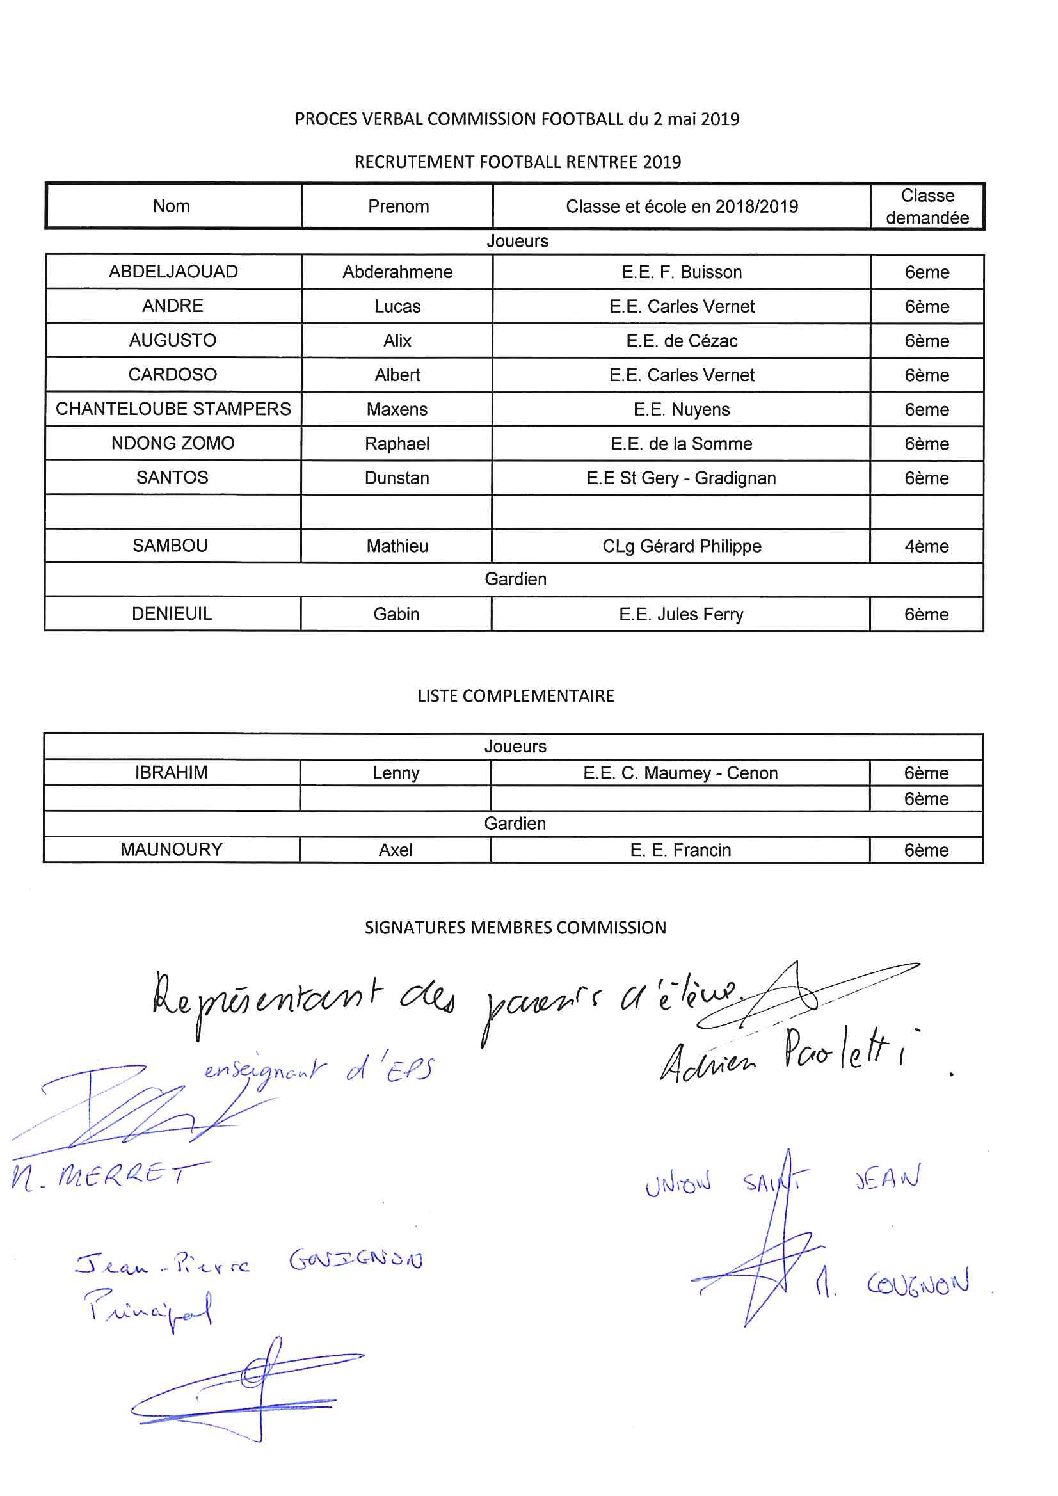 PROCES VERBAL COMMISSION FOOTBALL du 2 mai 2019
RECRUTEMENT FOOTBALL RENTREE 2019
Nom Prenom Classe et école en 2018/2019 Classe demandée
Joueurs
ABDELJAOUAD Abderahmene E.E. F. Buisson 6eme
ANDRE Lucas E.E. Carles Vernet 6ème
AUGUSTO Alix E.E. de Cézac 6ème
CARDOSO Albert E.E. Carles Vernet 6ème
CHANTELOUBE STAMPERS Maxens E.E. Nuyens 6eme
NDONG ZOMO Raphael E.E. de la Somme 6ème
SANTOS Dunstan E.E St Gery - Gradignan 6ème
SAMBOU Mathieu CLg Gérard Philippe 4ème
Gardien
DENIEUIL Gabin E.E. Jules Ferry 6ème
LISTE COMPLEMENTAIRE
Joueurs
IBRAHIM Lenny E.E. C. Maumey - Cenon 6ème
6ème
Gardien
MAUNOURY Axel E. E. Francin 6ème
SIGNATURES MEMBRES COMMISSION
Représentant des parents d'élève.
Adrien Paoletti.
enseignant d'EPS
M. MERRET
UNION SAINT JEAN
M. COUGNON
Jean-Pierre
Principal